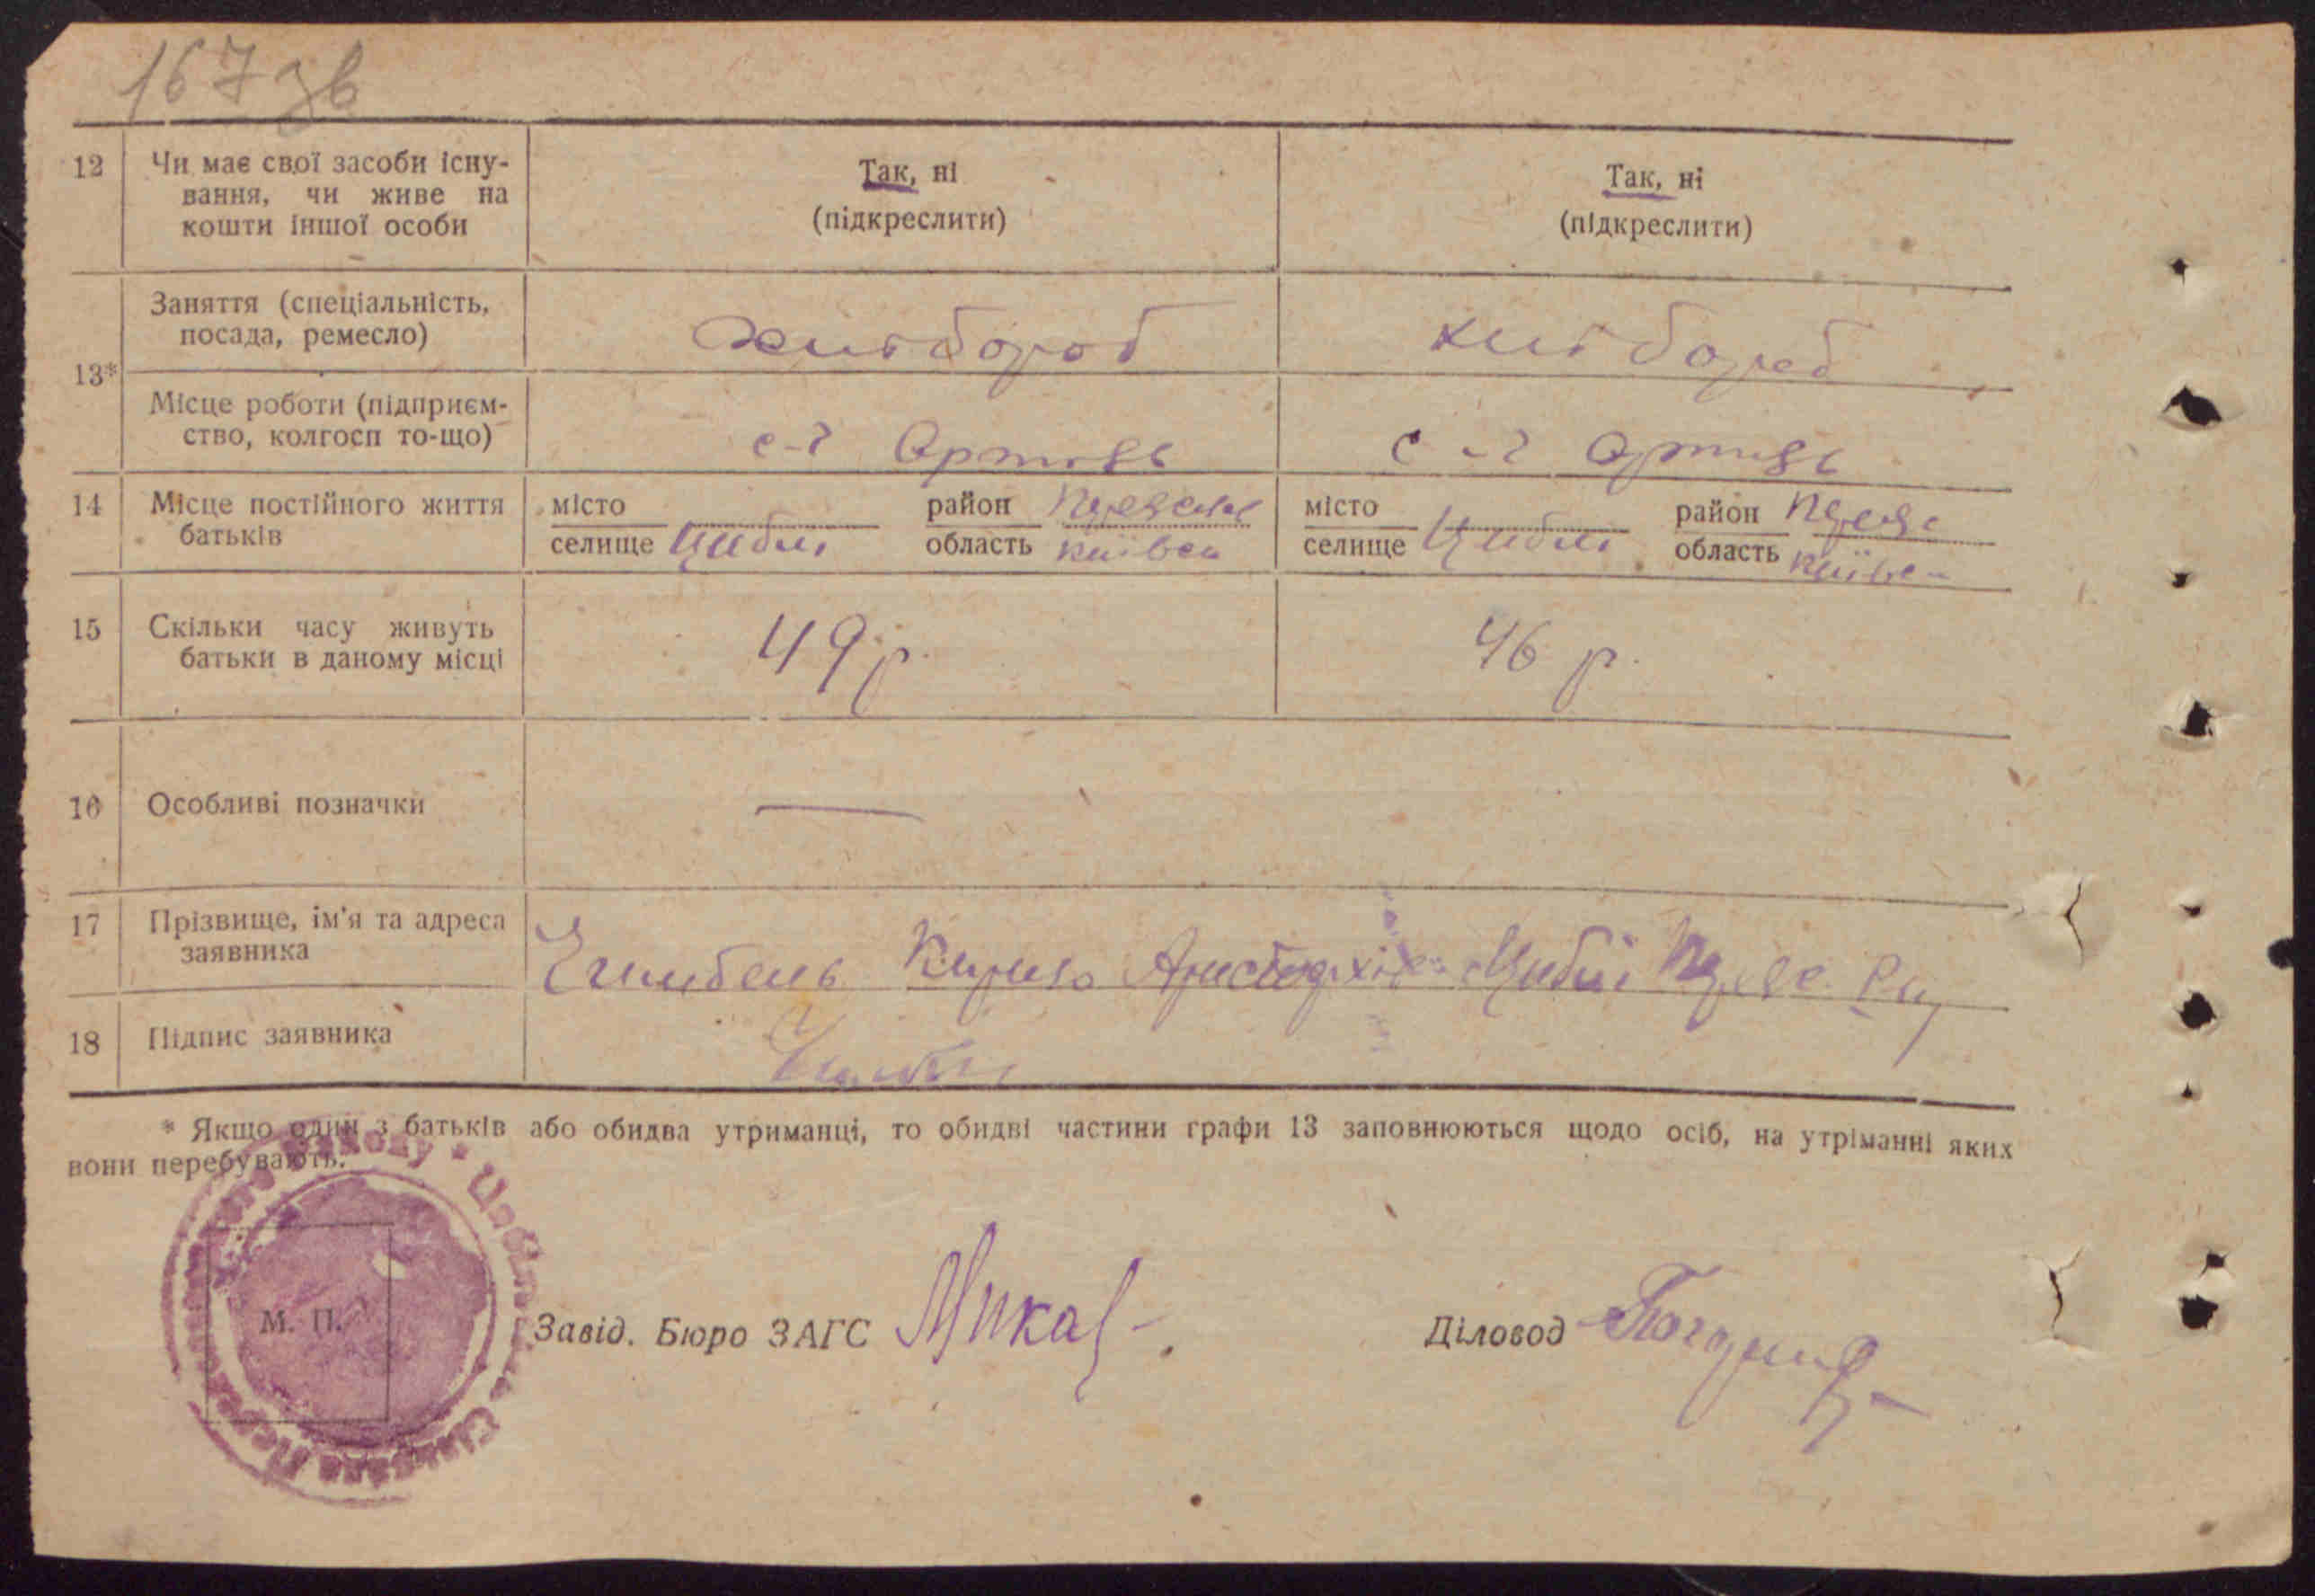 167 зв
12 Чи має свої засоби існу- Так, ні Так, ні
вання, чи живе на (підкреслити) (підкреслити)
кошти іншої особи
Заняття (спеціальність,
посада, ремесло) хлібороб хлібороб
13*
Місце роботи (підприєм-
ство, колгосп то-що) с-г Артіль с-г Артіль
14 Місце постійного життя місто район місто район
батьків селище Циблі область Київск селище Циблі область
15 Скільки часу живуть 49 р. 46 р.
батьки в даному місці
16 Особливі позначки —
17 Прізвище, ім'я та адреса
заявника Кирило Циблі
18 Підпис заявника
* Якщо один з батьків або обидва утриманці, то обидві частини графи 13 заповнюються щодо осіб, на утріманні яких
вони перебувають.
М. П.
Завід. Бюро ЗАГС Діловод